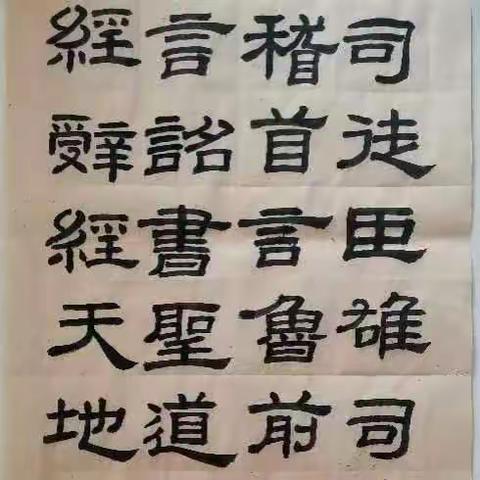 司徒臣雄司
稽首言魯前
言詔書聖道
經辤經天地